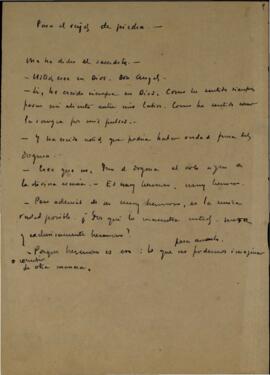 Para el reloj de piedra.—
Me ha dicho el sacerdote.
— Usted cree en Dios. Don Angel.
— Sí, he creido siempre en Dios. Como he sentido siempre
pasar mi aliento entre mis labios. Como he sentido
la sangre por mis pulsos.
— Y ha creido usted que podía haber verdad fuera del
Dogma.
— Creo que no. Pues el Dogma el
la divina .— Es muy hermoso, muy hermoso.
— Pero además de ser muy hermoso, es la unica
verdad posible. ¿Por qué lo encuentra usted
y exclusivamente hermoso?
— Porque hermoso es eso: lo que no podemos imaginar
de otra manera.